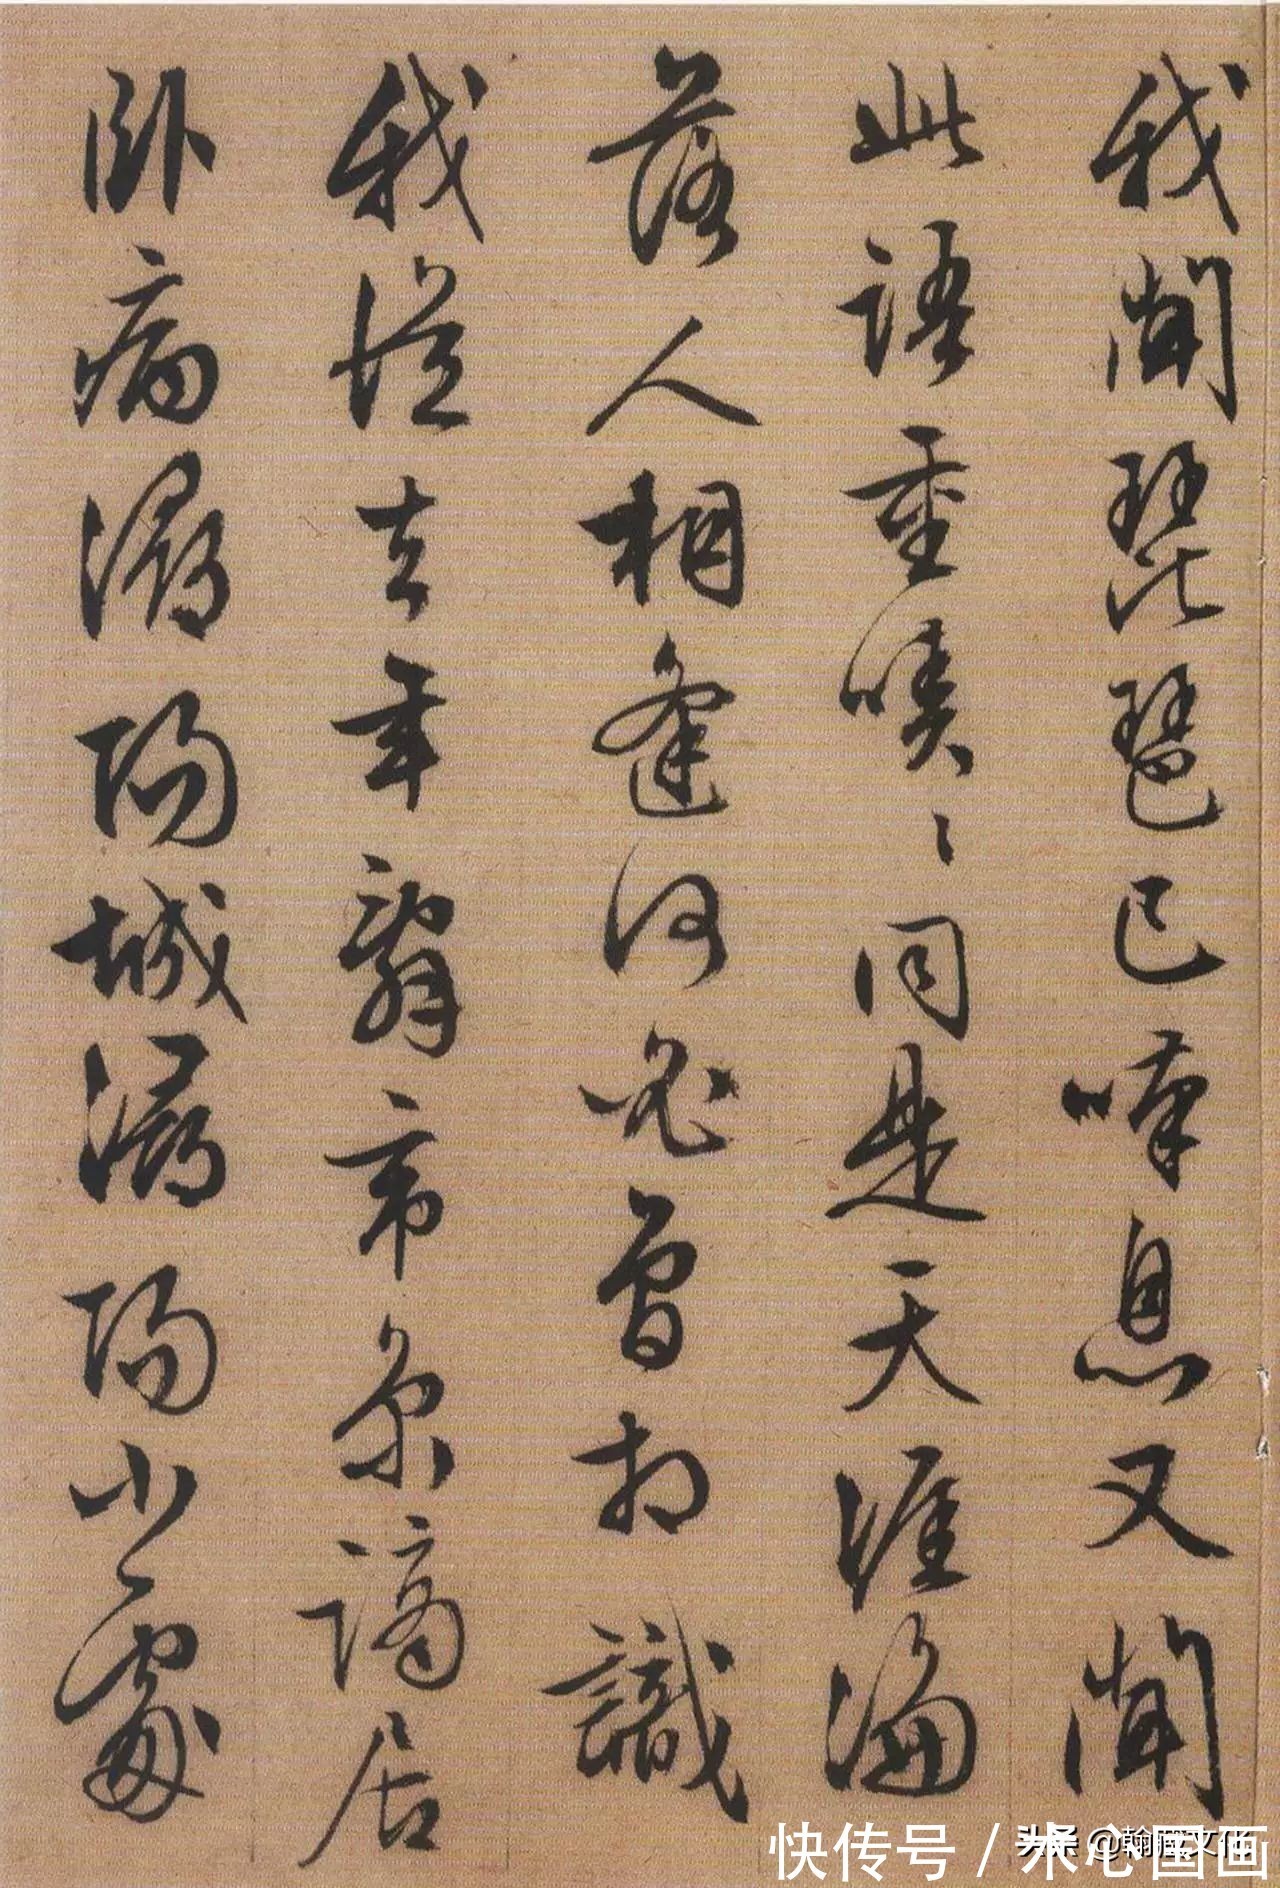 我聞琵琶已嘆息又聞
此語重唧〻同是天涯淪
落人相逢何必曾相識
我從去年辭帝京謫居
臥病潯陽城潯陽小處
快传号/木心国画
头条 @翰墨文化